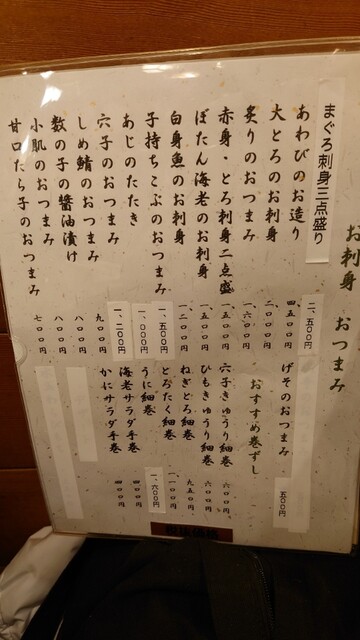 お刺身 おつまみ
まぐろ刺身三点盛り 二、五〇〇円
あわびのお造り 四、五〇〇円
大とろのお刺身 二、〇〇〇円
炙りのおつまみ 一、六〇〇円
赤身・とろ刺身二点盛 一、五〇〇円
ぼたん海老のお刺身 一、五〇〇円
白身魚のお刺身 一、二〇〇円
子持ちこぶのおつまみ 一、五〇〇円
あじのたたき 一、〇〇〇円
穴子のおつまみ 一、二〇〇円
しめ鯖のおつまみ 九〇〇円
数の子の醤油漬け 八〇〇円
小肌のおつまみ 八〇〇円
甘口たら子のおつまみ 七〇〇円
げそのおつまみ 五〇〇円
おすすめ巻ずし
穴子きゅうり細巻 六〇〇円
ひもきゅうり細巻 六〇〇円
ねぎとろ細巻 九五〇円
とろたく細巻 一、一〇〇円
うに細巻 一、六〇〇円
海老サラダ手巻 四〇〇円
かにサラダ手巻 四〇〇円